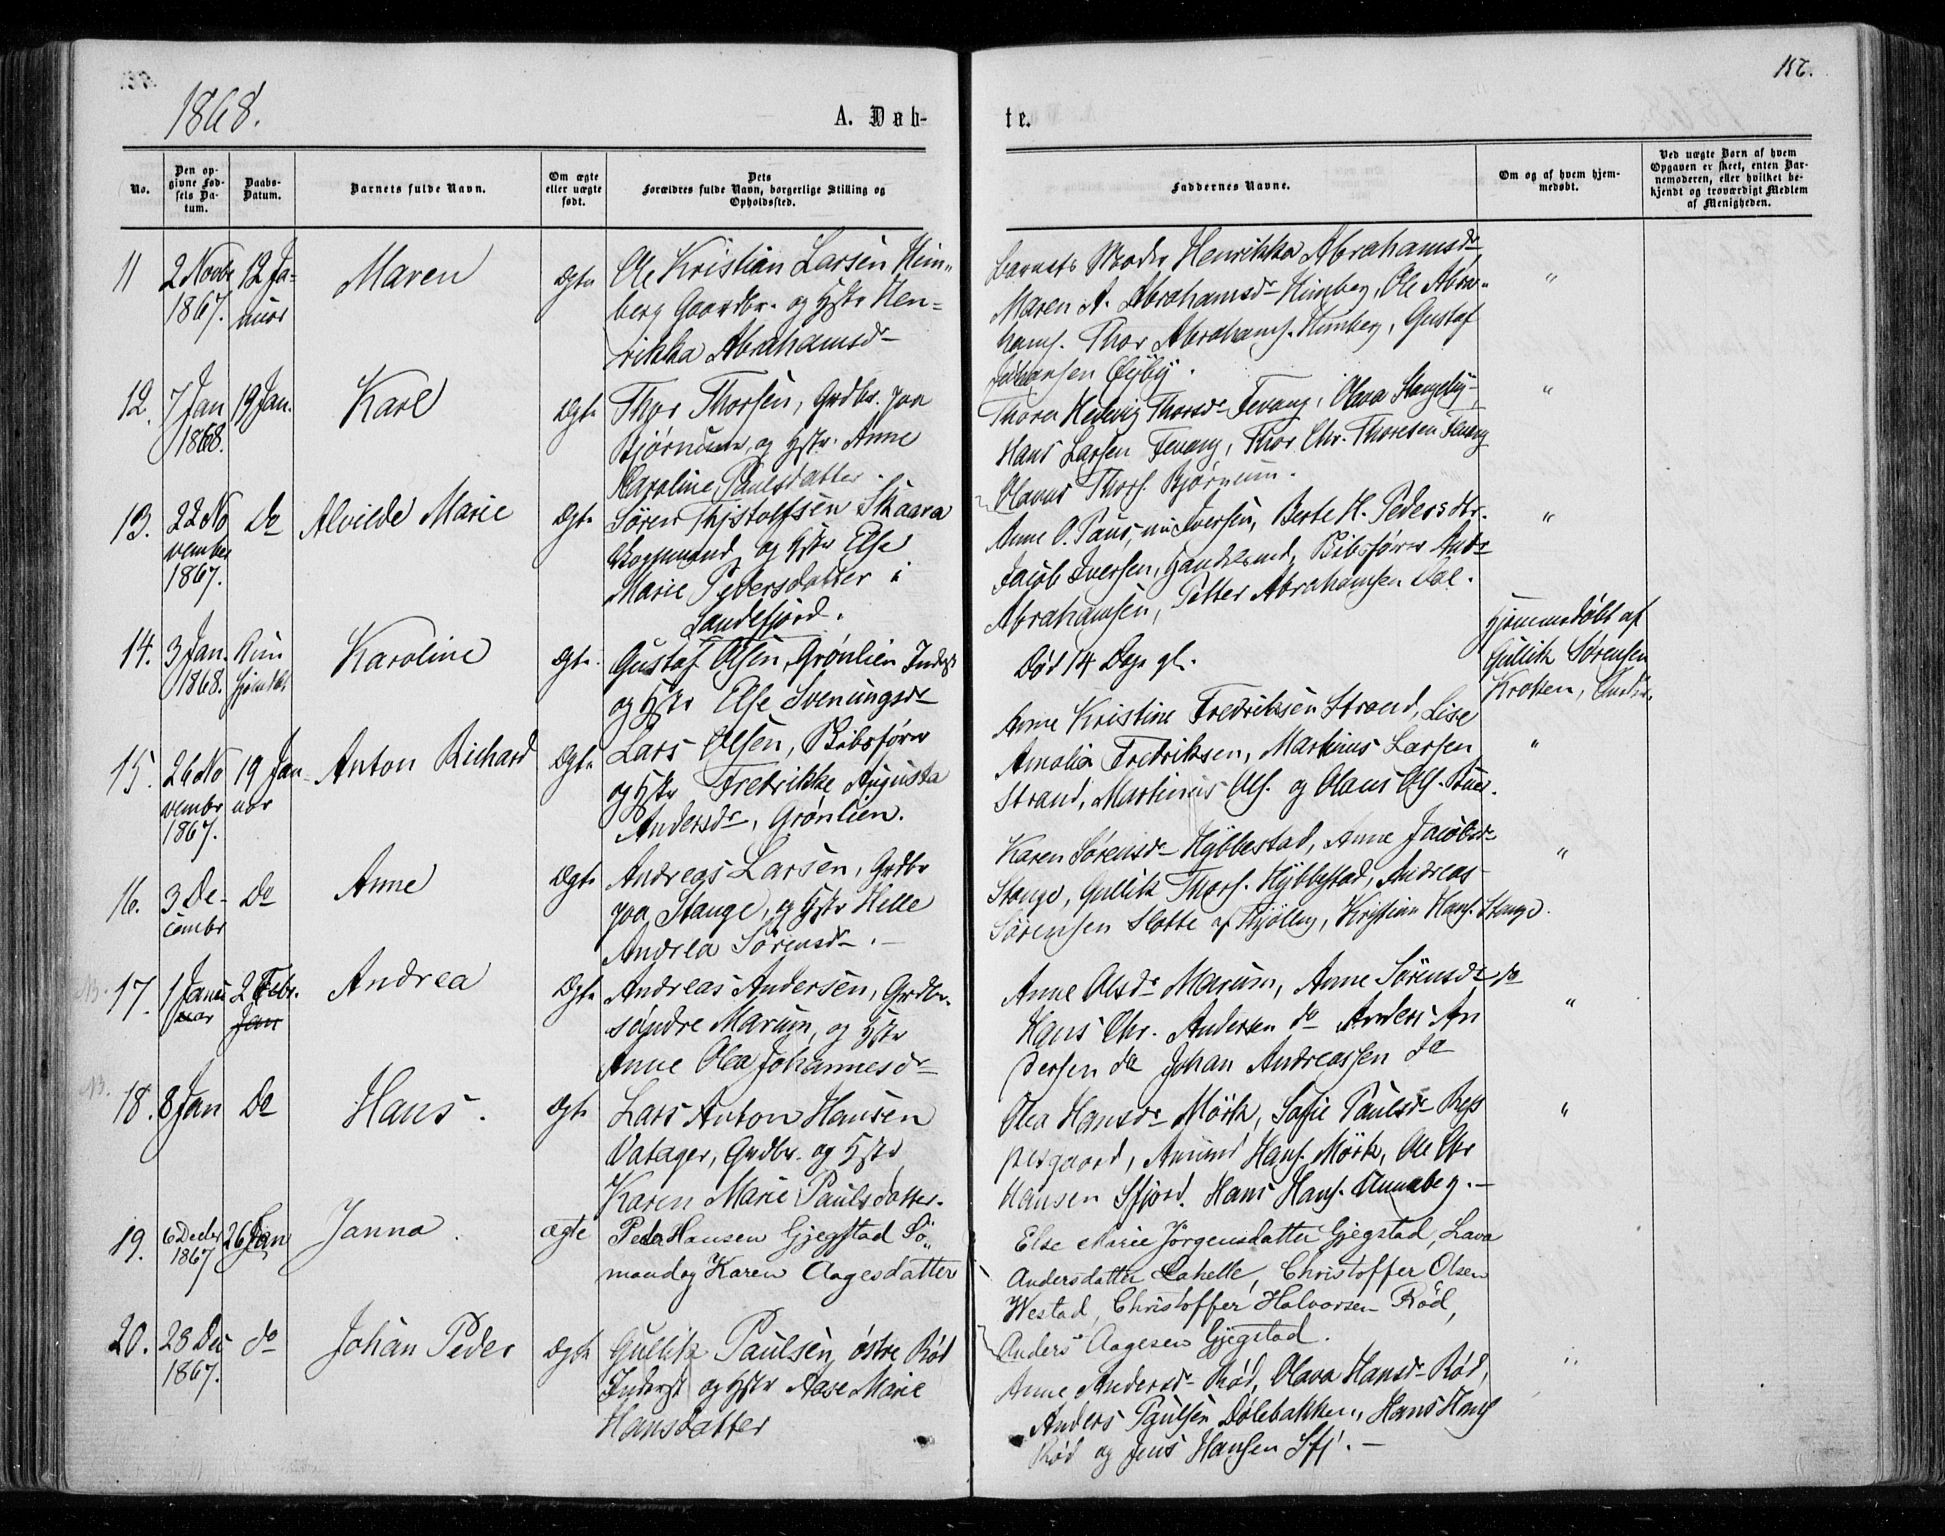 1868.
A. Døb-
te.
No.
Den op-
givne Fød-
sels Da-
tum.
Daabs-
Datum.
Barnets fulde Navn.
Om ægte
eller uægte
født.
Dets
Forældres fulde Navn, borgerlige Stilling og
Opholdssted.
Faddernes Navne.
Om og af hvem hjem-
medøbt.
Ved uægte Børn af hvem
Opgaven er skeet, enten Bar-
nemoderen, eller hvilket be-
kjendt og troværdigt Medlem
af Menigheden.
11
2 Novbr
1867.
12 Ja-
nuar
Maren
Ægte
Ole Kristian Larsen Him-
berg Gaardbr. og Hstr Hen-
rikka Abrahamsdr
Barnets Moder Henrikka Abrahamsdr
Maren A. Abrahamsdr Himberg, Ole Abra-
hams. Thor Abrahams. Himberg, Gustaf
Johansen
"
12.
7 Jan
1868.
19 Jan.
Karl
Ægte
Thor Thorsen, Grdbr. paa
Bjørnum, og Hstr. Anne
Karoline Paulsdatter.
Thora Hedvig Thorsdr Fevang, Olava Stangeby,
Hans Larsen Fevang, Thor Chr. Thoresen Fevang
Olavus Thors. Bjørnum.
"
13.
22 No
vember
1867.
do
Alvilde Marie
Ægte
Søren Thjostolfsen Skaara
og Hstr Else
Marie Pedersdatter i
Sandefjord.
Anne O. Paus, Iversen, Berte H. Pedersdtr.
Jacob Iversen, Handelsmd, Andr
Abrahamsen, Petter Abrahamsen Dal.
"
14.
3 Jan.
1868.
Kun
hjemdbt
Karoline
Ægte.
Gustaf Olsen, Grønlien Inderst
og Hstr Else Svenungsdr
Død 14 Dage gl.
Hjemmedøbt af
Gullik Sørensen
Kroken,
15.
26 No
vembr
1867.
19 Jan-
uar
Anton Richard
Ægte
Lars Olsen,
og Hstr Fredrikke Augusta
Andersdr, Grønlien.
Anne Kristine Fredriksen Strand, Lise
Amalia Fredriksen, Martinus Larsen
Strand, Martinius Ols. og Olaus Ols.
"
16.
3 De-
cembr
do
Anne
Ægte
Andreas Larsen, Grdbr
paa Stange, og Hstr Helle
Andrea Sørensdr.
Karen Sørensdr Hybbestad, Anne Jacobsdr
Stange, Gullik Thors. Hybbestad, Andreas
Sørensen Slotte af Tjølling, Kristian Hans. Stange.
"
17.
1 Janu
uar
2 Febr.
Jan
Andrea
Ægte
Andreas Andersen, Grdbr.
søndre Marum, og Hstr
Anne Olea Johannesdr
Anne Olsdr Marum, Anne Sørensdr do
Hans Chr. Andersen do Anders An
dersen do Johan Andreassen do
"
18.
8 Jan
do
Hans.
Ægte
Lars Anton Hansen
Vatager, Grdbr. og Hstr
Karen Marie Paulsdatter.
Olea Hansdr Mørk, Sofie Paulsdr
Amund Hans. Mørk, Ole Chr
Hansen Sfjord. Hans Hans. Unneberg.
"
19.
6 Decbr
1867
26 Jan
Janna.
ægte
Peder Hansen Gjegstad Sø-
mand og Karen Aagesdatter
Else Marie Jørgensdatter Gjegstad, Lava
Andersdatter Lahelle, Christoffer Olsen
Westad, Christoffer Halvorsen Rød,
Anders Aagesen Gjegstad.
20.
23 De
1867.
do
Johan Peder
Ægte
Gullik Paulsen, østre Rød
Inderst og Hstr Aase Marie
Hansdatter
Anne Andersdr Rød, Olava Hansdr Rød,
Anders Paulsen Dølebakken, Hans Hans
Rød og Jens Hansen Sfj.
"